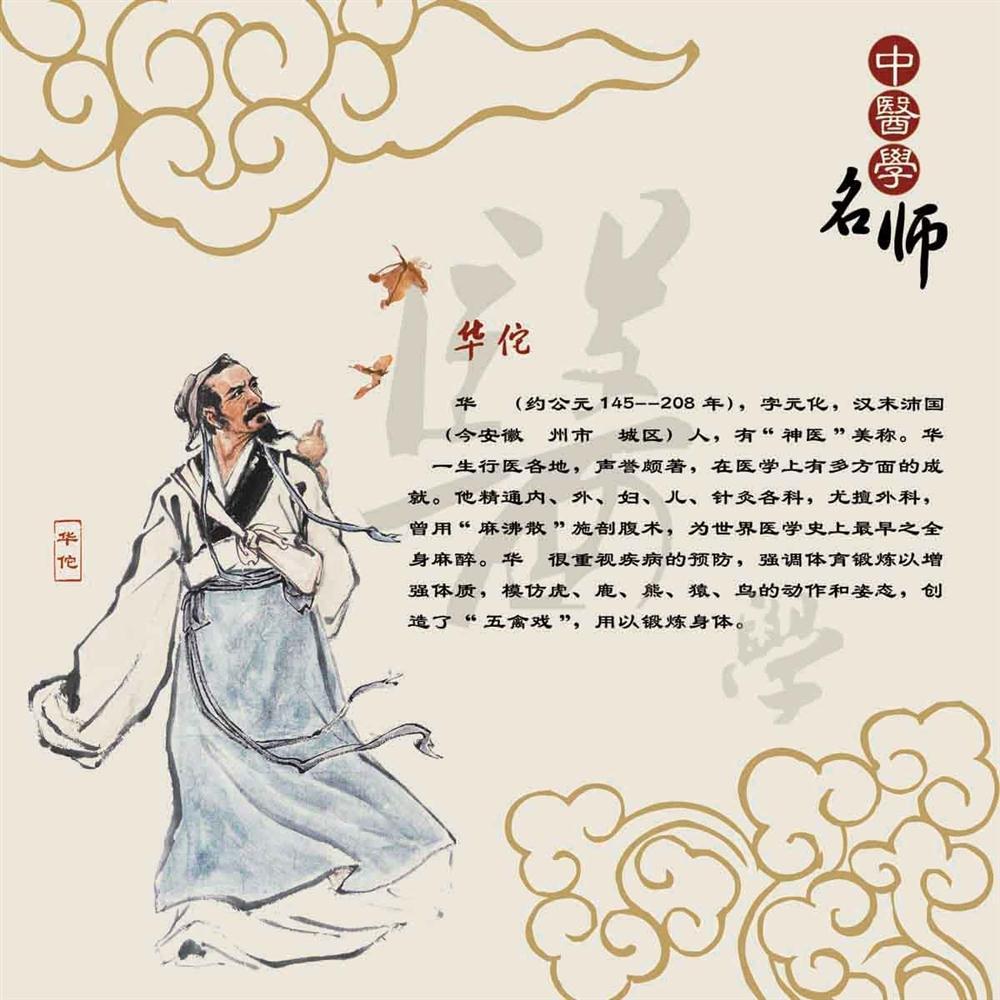 中醫學
名师
華佗
华　（约公元145--208年），字元化，汉末沛国
（今安徽　州市　城区）人，有“神医”美称。华
一生行医各地，声誉颇著，在医学上有多方面的成
就。他精通内、外、妇、儿、针灸各科，尤擅外科，
曾用“麻沸散”施剖腹术，为世界医学史上最早之全
身麻醉。华　很重视疾病的预防，强调体育锻炼以增
强体质，模仿虎、鹿、熊、猿、鸟的动作和姿态，创
造了“五禽戏”，用以锻炼身体。
华佗
醫
學